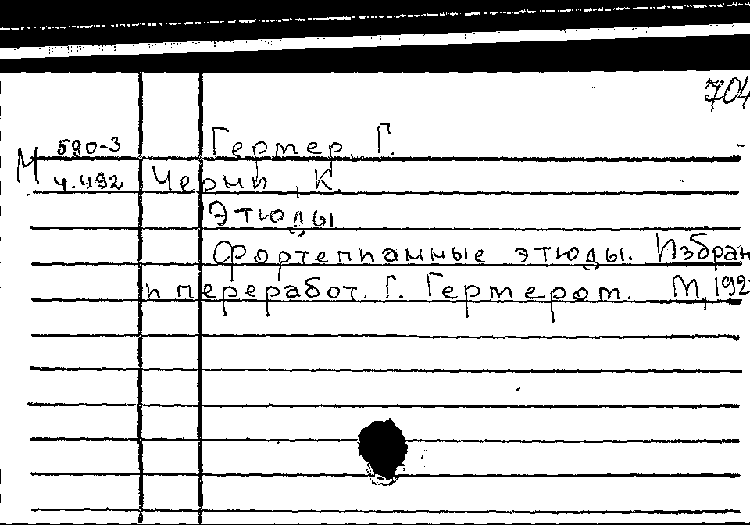 704
590-3 Гермер, Г.
М ч.492 Черни, К.
Этюды
Фортепианные этюды. Избран
и переработ. Г. Гермером. М, 192